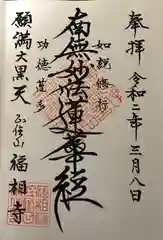 奉拝 令和二年三月八日
如説修行
南無妙法蓮華経
功徳蓮多
願満大黒天
正住山 福相寺